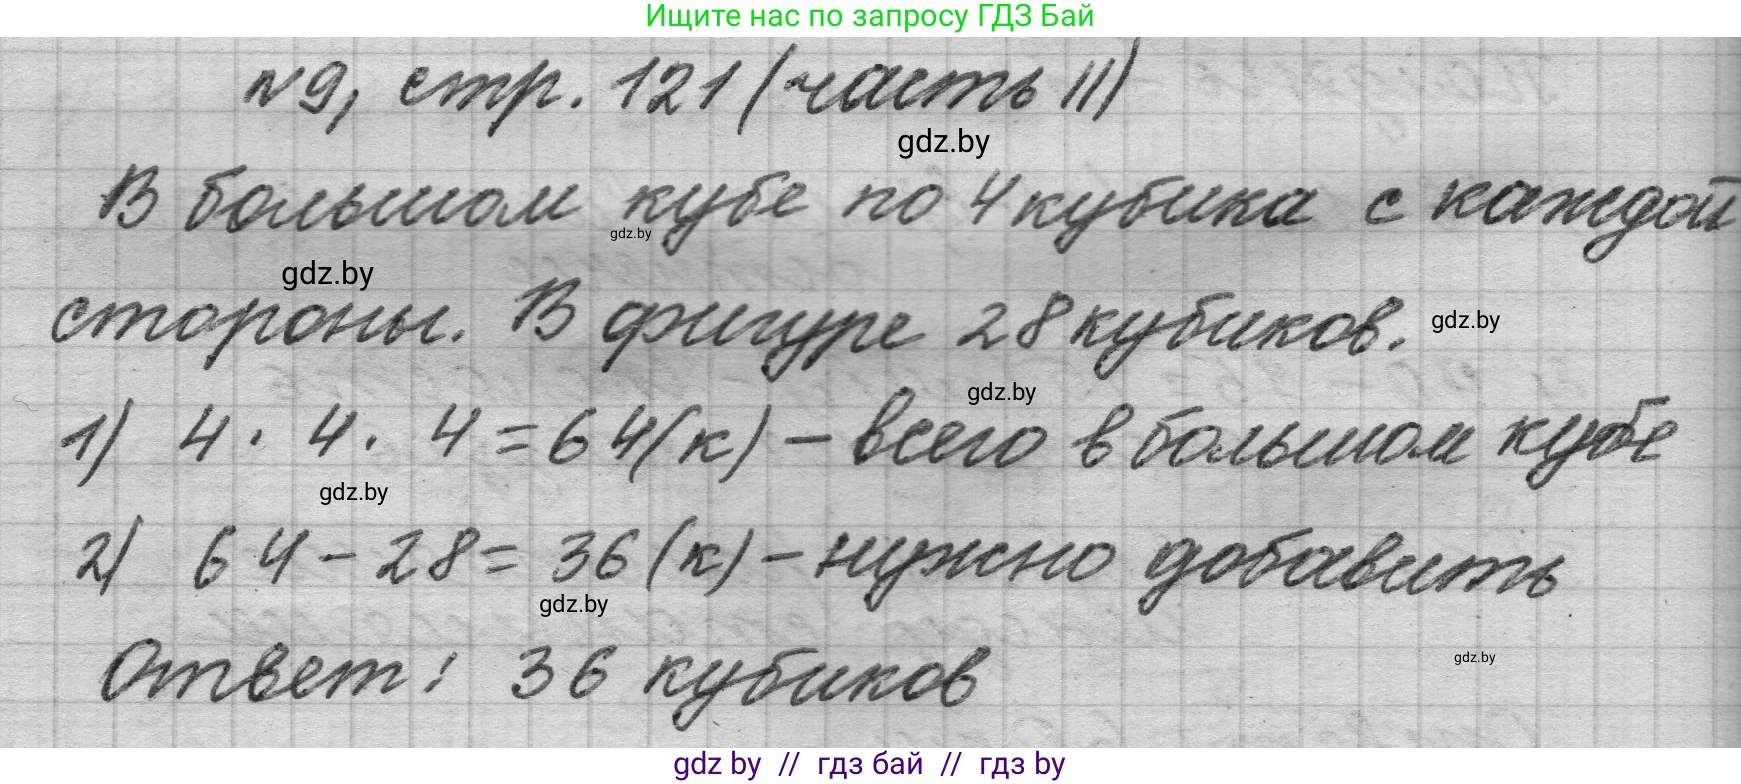 Ищите нас по запросу ГДЗ Бай
№9, стр. 121 (часть II)
gdz.by
В большом кубе по 4 кубика с каждой
gdz.by
gdz.by
стороны. В фигуре 28 кубиков.
gdz.by
gdz.by
1) 4 · 4 · 4 = 64 (к) - всего в большом кубе
gdz.by
2) 64 - 28 = 36 (к) - нужно добавить
gdz.by
Ответ: 36 кубиков
gdz.by
gdz by // гдз бай // гдз by